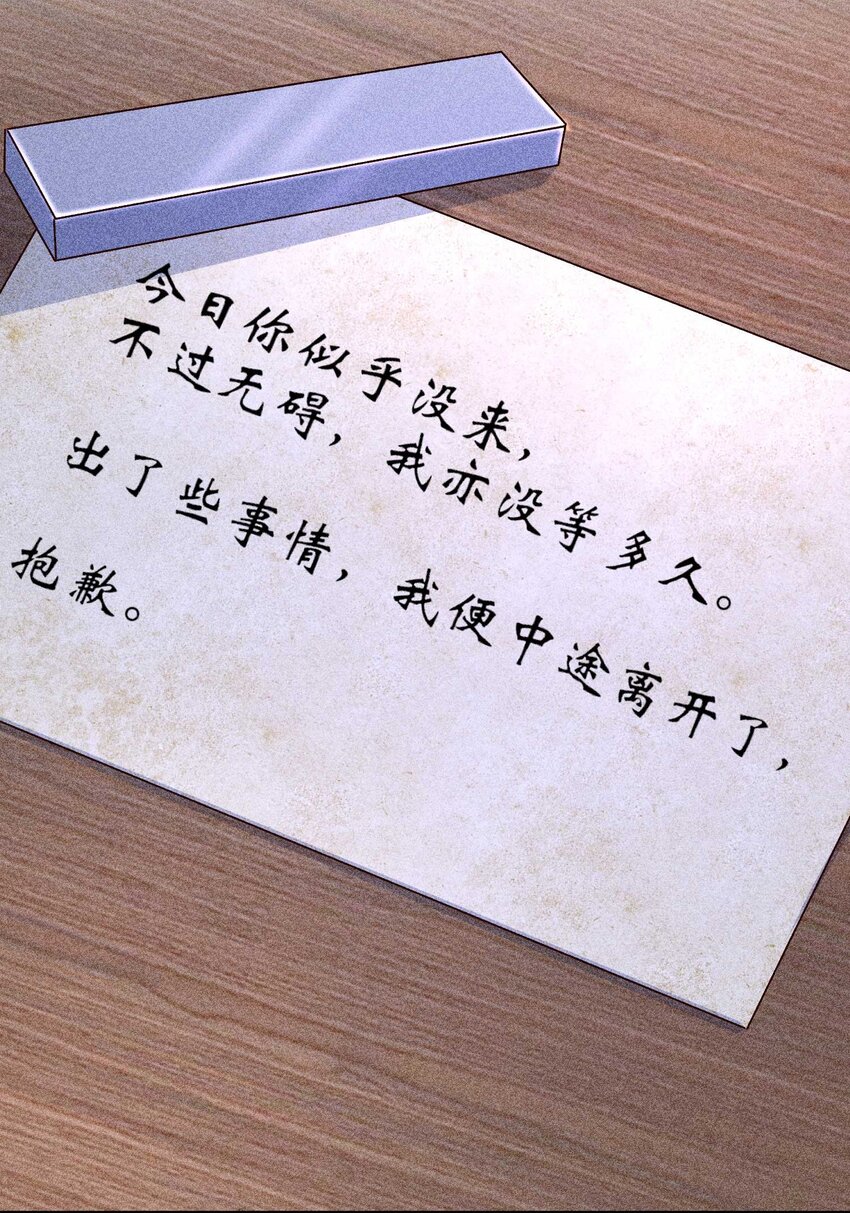 今日你似乎没来，
不过无碍，我亦没等多久。
出了些事情，我便中途离开了，
抱歉。